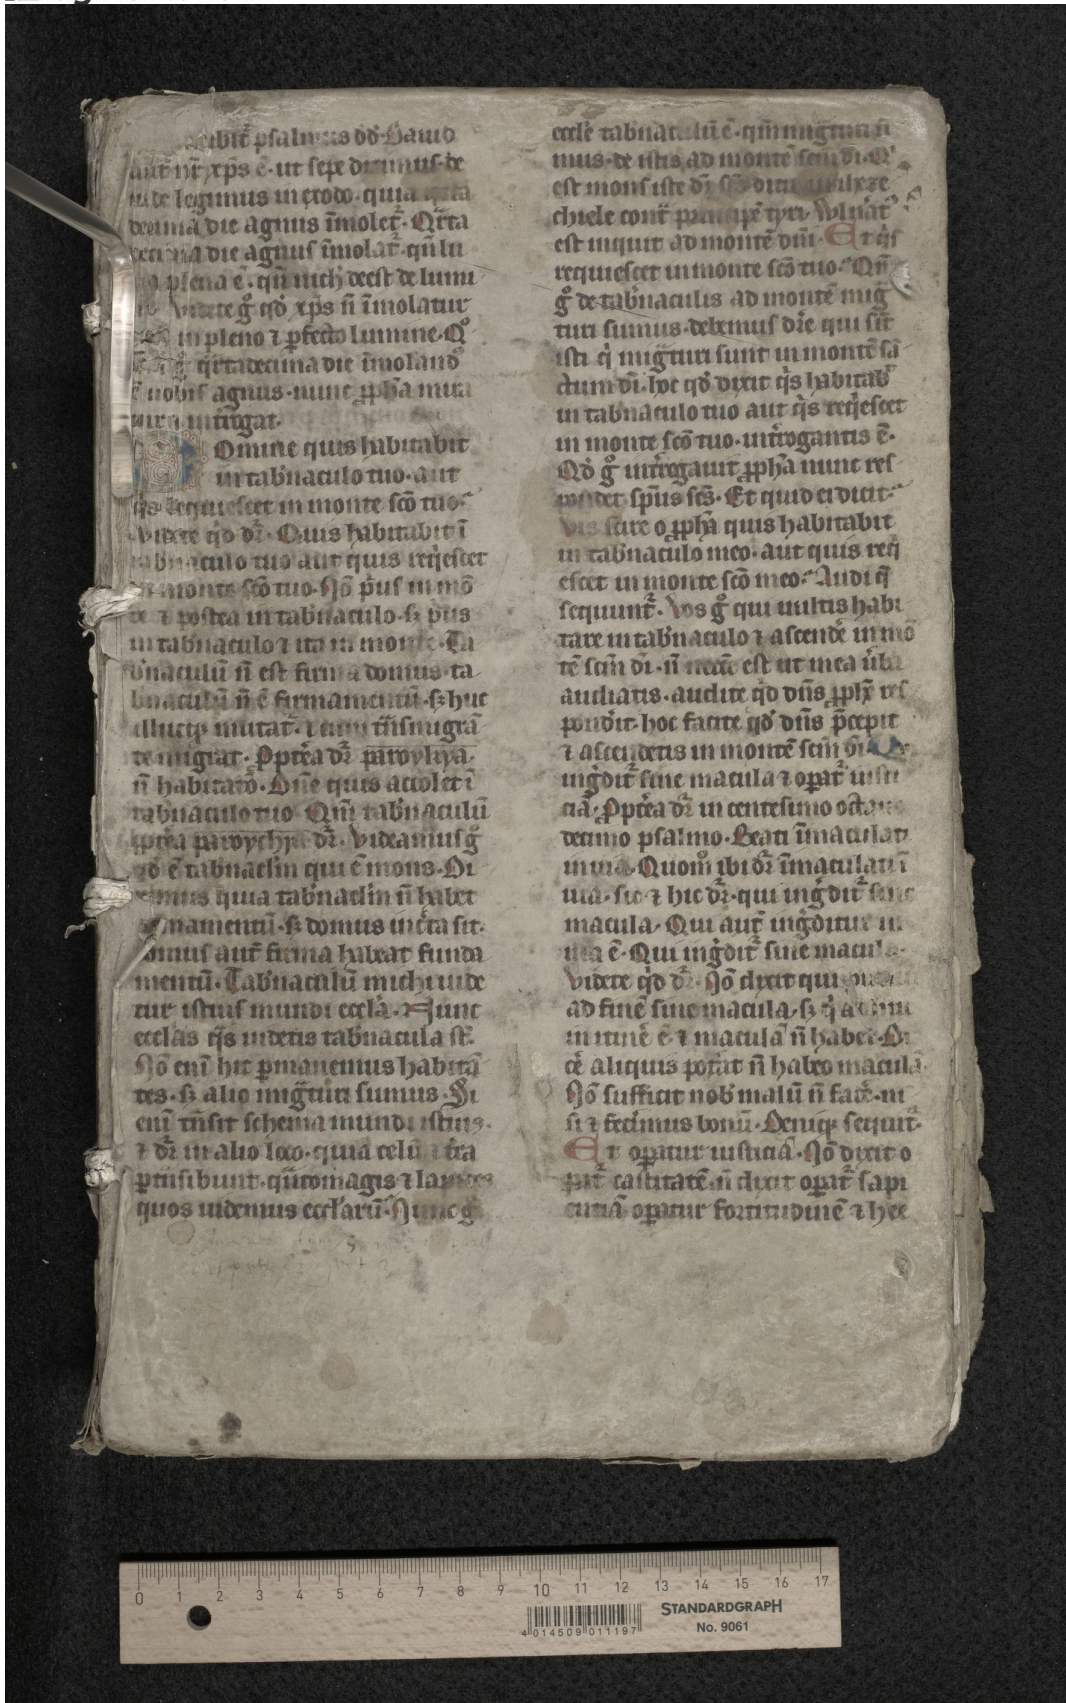 psalmus dd Dauid
aut nr̄ xp̄s ē · ut sepe diximus · de
legimus in exodo · quia
decima die agnus īmolet᷑ · Qᵃrta
decima die agnus īmolat᷑ · qn̄ lu
na plena ē · qn̄ nich̄ deest de lumi
Videte gͦ qd̓ xp̄s n̄ īmolatur
in pleno ⁊ ꝑfecto lumine · Qͦ
qᵃrtadecima die īmoland̓
nobis agnus · nunc ꝓph̄a
int̓rogat ·
Omine quis habitabit
in tab̓naculo tuo · aut
q̓s requiescet in monte scō tuo ·
Videte qd̓ dr̄ · Quis habitabit ī
tab̓naculo tuo aut quis req̓escet
in monte scō tuo · Nō p̓us in mō
te ⁊ postea in tab̓naculo · ꝫ p̓us
in tab̓naculo ⁊ ita in monte · Ta
b̓naculū n̄ est firma domus · ta
b̓naculū n̄ ē firmamentū · ꝫ huc
illucqꝫ mutat᷑ · ⁊ cum tn̄smigrā
te migrat · Ꝓpt̓ea dr̄ paroykya ·
n̄ habitatō · Dn̄e quis accolet ī
tab̓naculo tuo Qm̄ tab̓naculū
ꝓpt̓ea paroychya dr̄ · Videamus gͦ
qd̓ ē tab̓naclm̄ qui ē mons · Di
ximus quia tab̓naclm̄ n̄ habet
firmamentū · ꝫ domus inc̓ta sit ·
Domus aut̄ firma habeat funda
mentū · Tab̓naculū michi uide
tur istius mundi eccl̄a · Nunc
eccl̄as q̓s uidetis tab̓nacula st̄ ·
Nō enī hic ꝑmanemus habitā
tes · ꝫ alio mig̓turi sumus · Si
enī tn̄sit schema mundi istius ·
⁊ dr̄ in alio loco · quia celū ⁊ t̓ra
ꝑtn̄sibunt · qn̄tomagis ⁊ lapides
quos uidemus eccl̄arū · Nunc gͦ
eccl̄e tab̓naculū ē · qm̄ mig̓turi su
mus · de istis ad montē scm̄ dī ·
est mons iste dr̄
chiele cont̓ principē tyri · Vuln̓at᷑
est inquit ad montē dn̄i · Et q̓s
requiescet in monte scō tuo · Qn̄
gͦ de tab̓naculis ad montē mig̓
turi sumus · debemus dic̓e qui sīt
isti q̓ mig̓turi sunt in montē sā
ctum dī · hoc qd̓ dixit q̓s habitab̓
in tab̓naculo tuo aut q̓s req̓escet
in monte scō tuo · int̓rogantis ē ·
Qd̓ gͦ int̓rogauit ꝓph̄a nunc res
pondet sp̄us scs̄ · Et quid ei dicit
Vis scire o ꝓph̄a quis habitabit
in tab̓naculo meo · aut quis req̓
escet in monte scō meo · Audi q̄
sequunt᷑ · Vos gͦ qui uultis habi
tare in tab̓naculo ⁊ ascend̓e in mō
tē scm̄ dī · n̄ necc̄e est ut mea u̓ba
audiatis · audite qd̓ dn̄s ꝓph̄e res
pond̓it · hoc facite qd̓ dn̄s p̄cepit
⁊ ascendetis in montē scm̄ dī Qui
ing̓dit᷑ sine macula ⁊ oꝑat᷑ iusti
ciā · Ꝓpt̓ea dr̄ in centesimo octauo
decimo psalmo · Beati īmaculati
in uia · Quomͦ ibi dr̄ īmaculati ī
uia · sic ⁊ hic dr̄ · qui ing̓dit᷑ sine
macula · Qui aut̄ ing̓ditur in
uia ē · Qui ing̓dit᷑ sine macula ·
Videte qd̓ dr̄ · Nō dixit qui
ad finē sine macula · ꝫ q̓ adhuc
in itin̓e ē ⁊ maculā n̄ habet · Di
c̓e aliquis pot̓at n̄ habeo maculā ·
Nō sufficit nob̓ malū n̄ fac̓e · ni
si ⁊ fec̓imus bonū · Deniqꝫ sequit᷑ ·
Et oꝑatur iusticiā · Nō dixit o
ꝑat᷑ castitatē · n̄ dixit oꝑat᷑ sapi
enciā oꝑatur fortitudinē ⁊ hec
0 1 2 3 4 5 6 7 8 9 10 11 12 13 14 15 16 17
STANDARDGRAPH
No. 9061
4 014509 011197